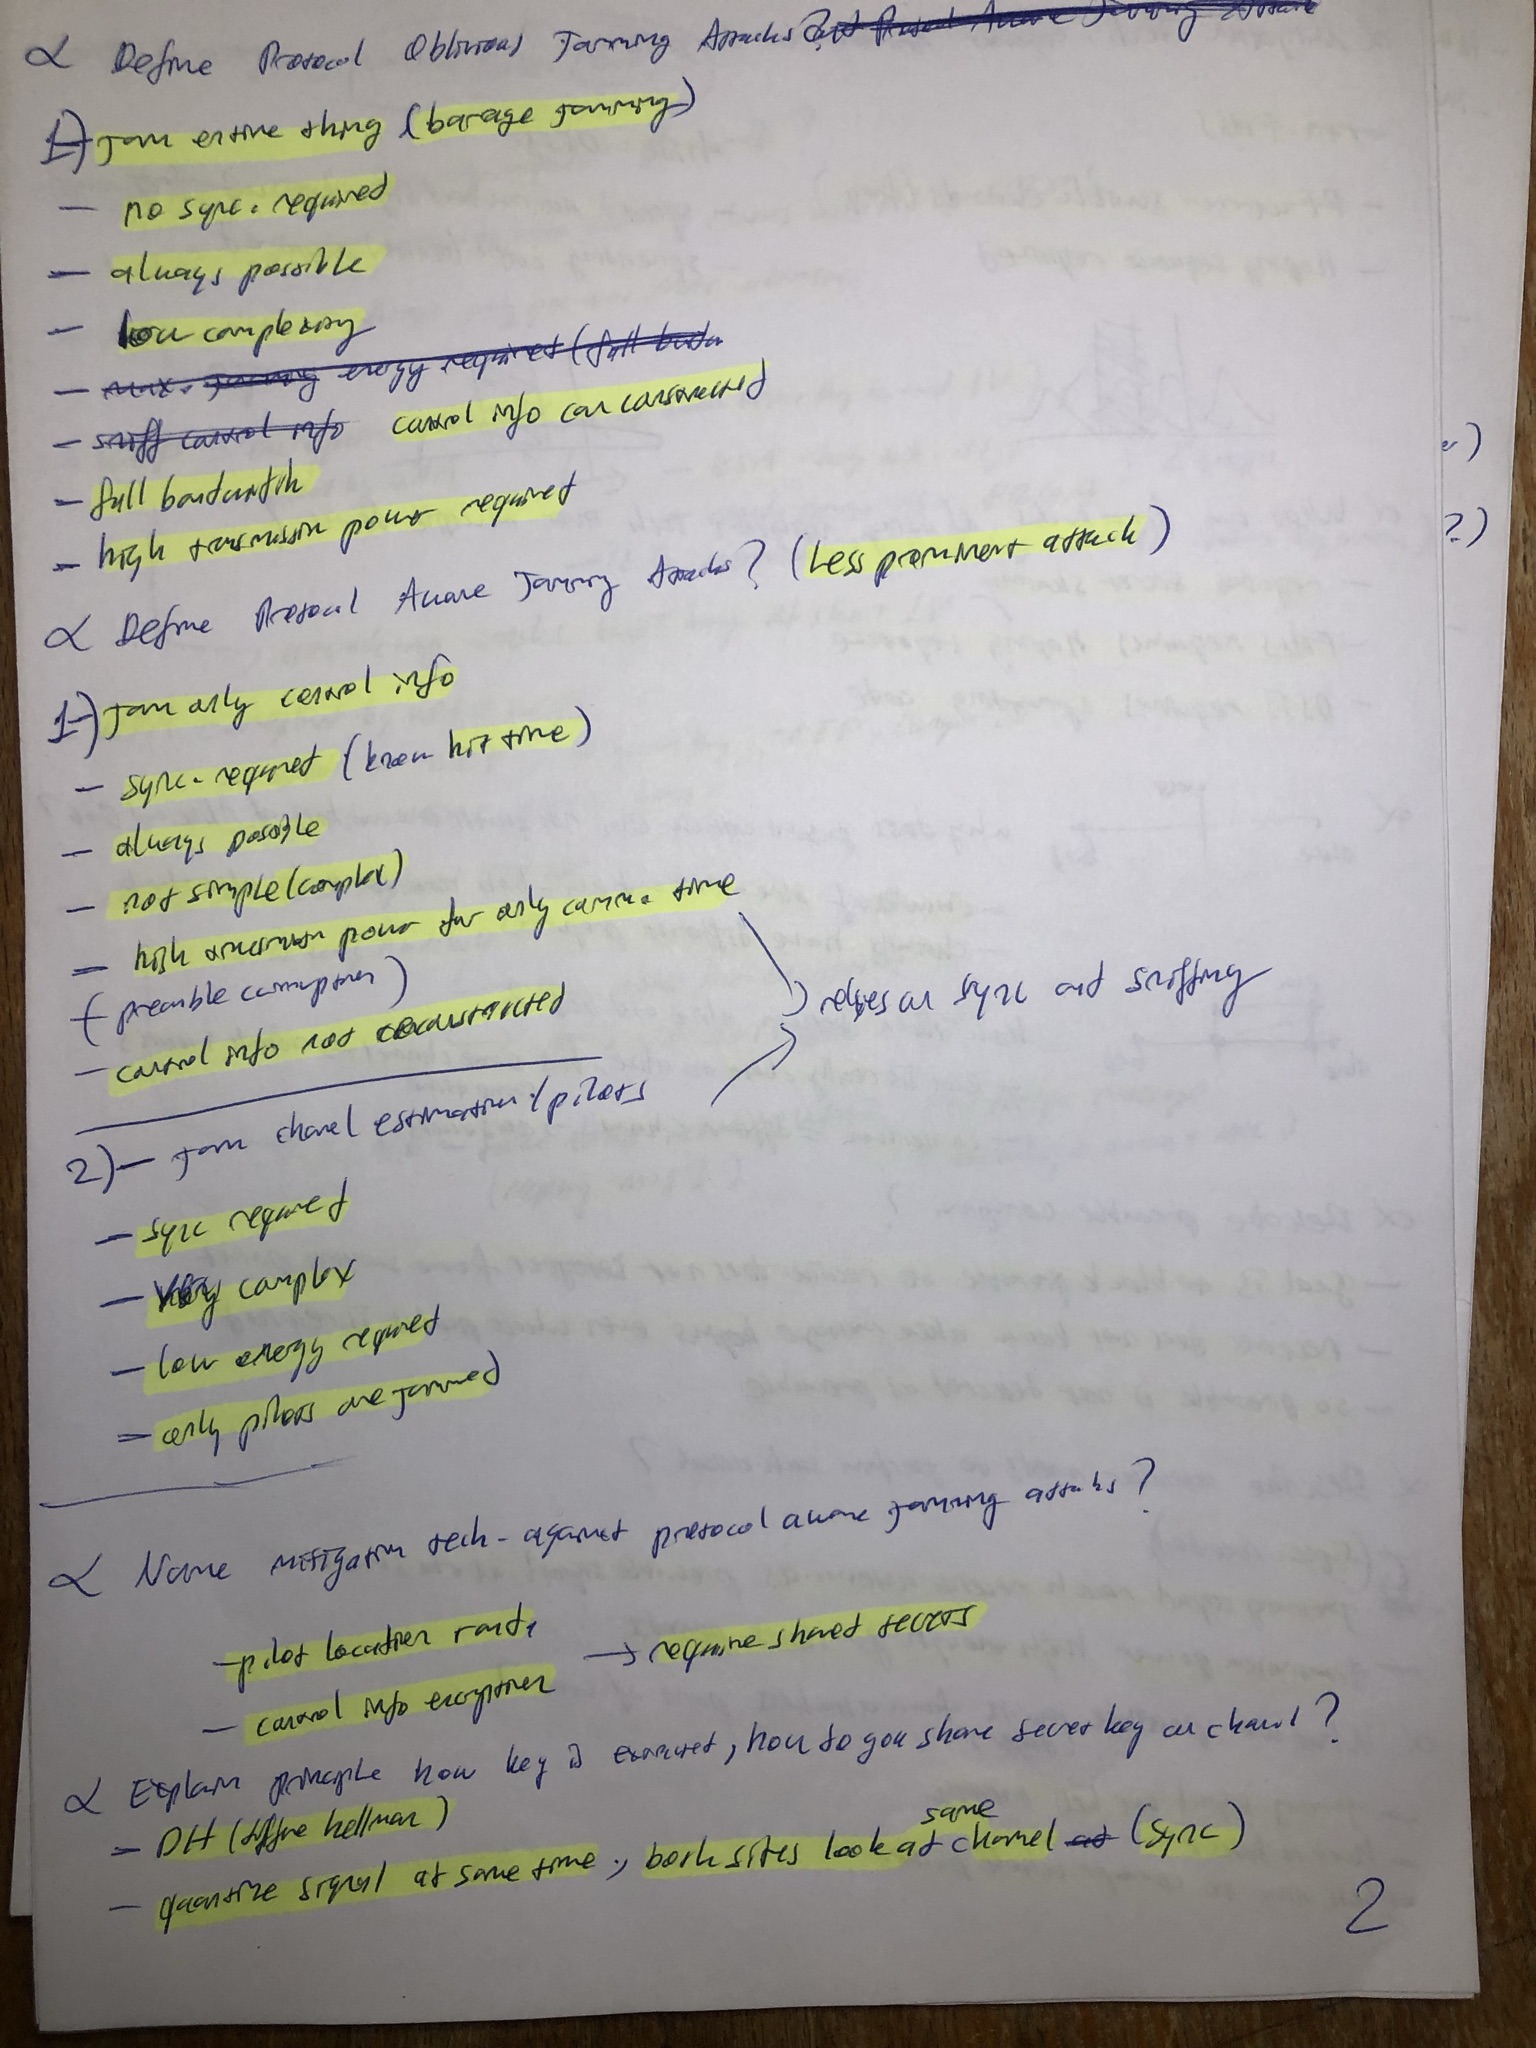 α Define Protocol Oblivious Jamming Attacks?
1) Jam entire thing (barage jamming)
- no sync. required
- always possible
- low complexity
- max. jamming energy required (full
- sniff control info control info can constructed
- full bandwidth
- high transmission power required
α Define Protocol Aware Jamming Attacks? (Less prominent attack)
1) Jam only control info
- sync. required (know hit time)
- always possible
- not simple (complex)
- high transmission power for only comm. time
(preamble corruption)
- control info not constructed
) relyes on sync and sniffing
2) - Jam channel estimation / pilots
- sync required
- Very complex
- low energy required
- only pilots are jammed
α Name mitigation tech. against protocol aware jamming attacks?
- pilot location rand.
→ require shared secrets
- control info encryption
α Explain principle how key is extracted, how do you share secret key on channel?
- DH (diffie hellman)
- quantize signal at same time, both sites look at same channel (sync)
2